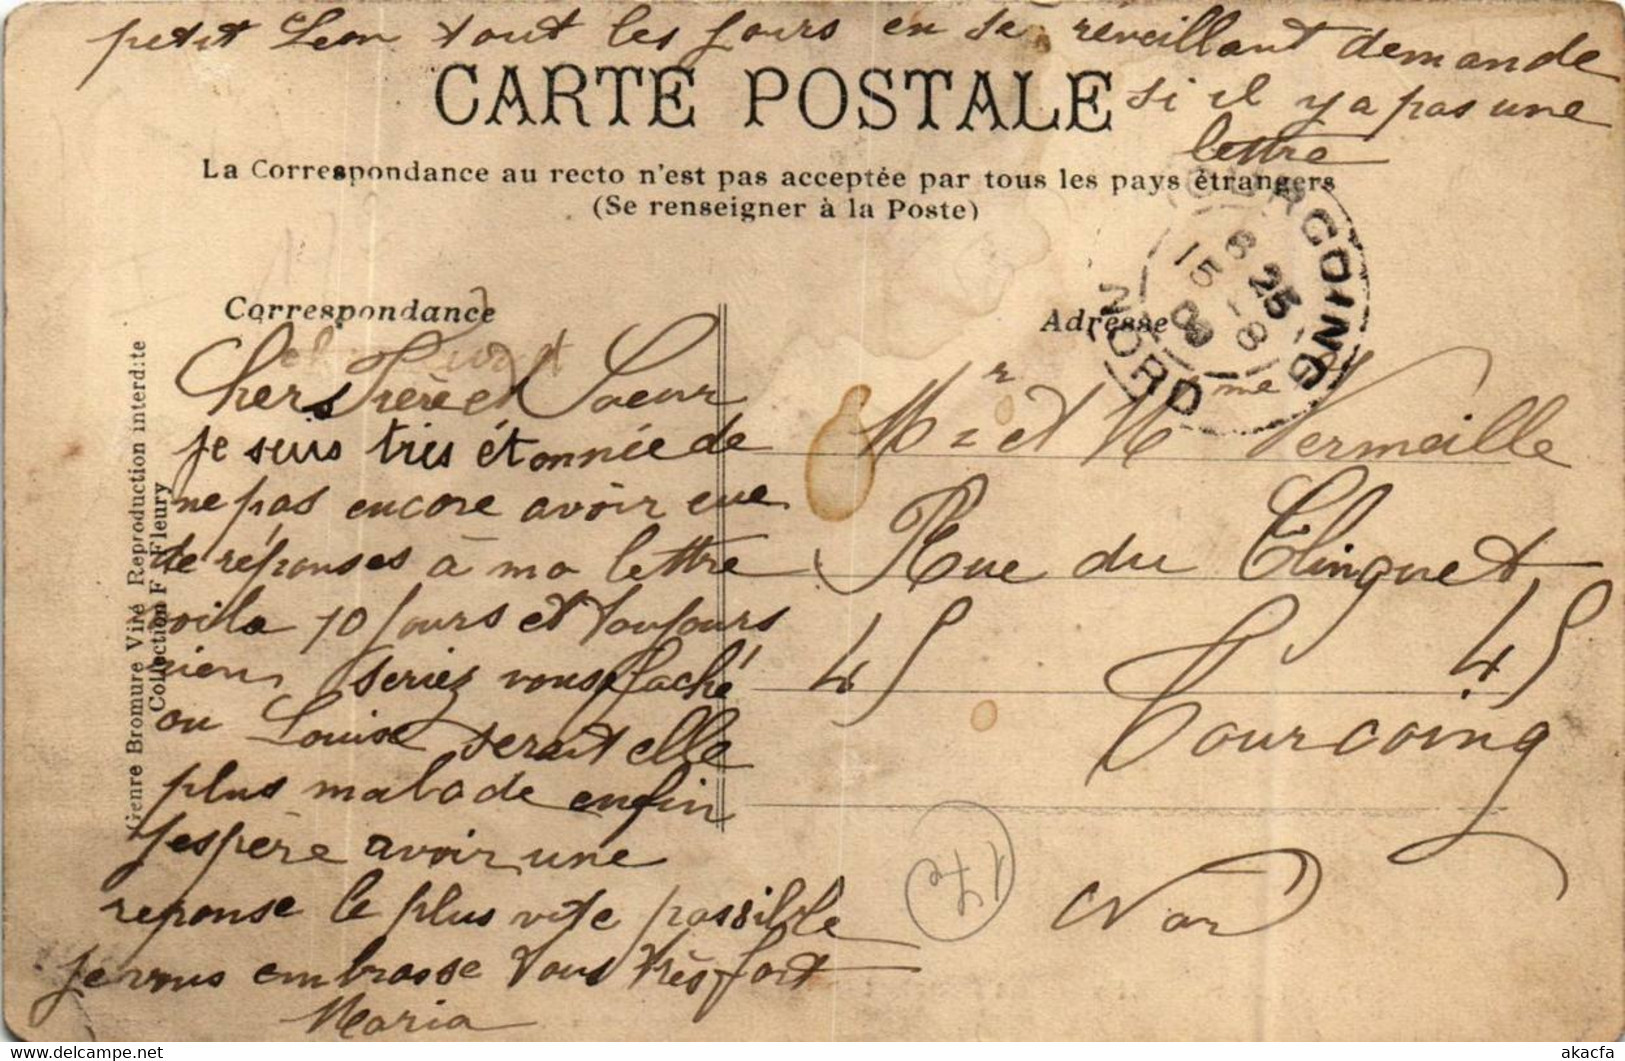 petit Leon tout les jours en se reveillant demande
si il y a pas une
lettre
CARTE POSTALE
La Correspondance au recto n'est pas acceptée par tous les pays étrangers
(Se renseigner à la Poste)
Correspondance
Chers Frère et Soeur
je suis tris étonnée de
ne pas encore avoir eue
de réponses à ma lettre
voila 10 jours et toujours
rien, seriez vous faché
ou Louise serait elle
plus malade enfin
j'espère avoir une
reponse le plus vite possible
je vous embrasse tous très fort
Maria
Genre Bromure Viré Reproduction interdite
Collection F. Fleury
Adresse
TOURCOING
NORD
8 25
15 - 8
08
Mr et Mme Vermeille
Rue du Clinquet
45 45
Tourcoing
Nord
akacfa